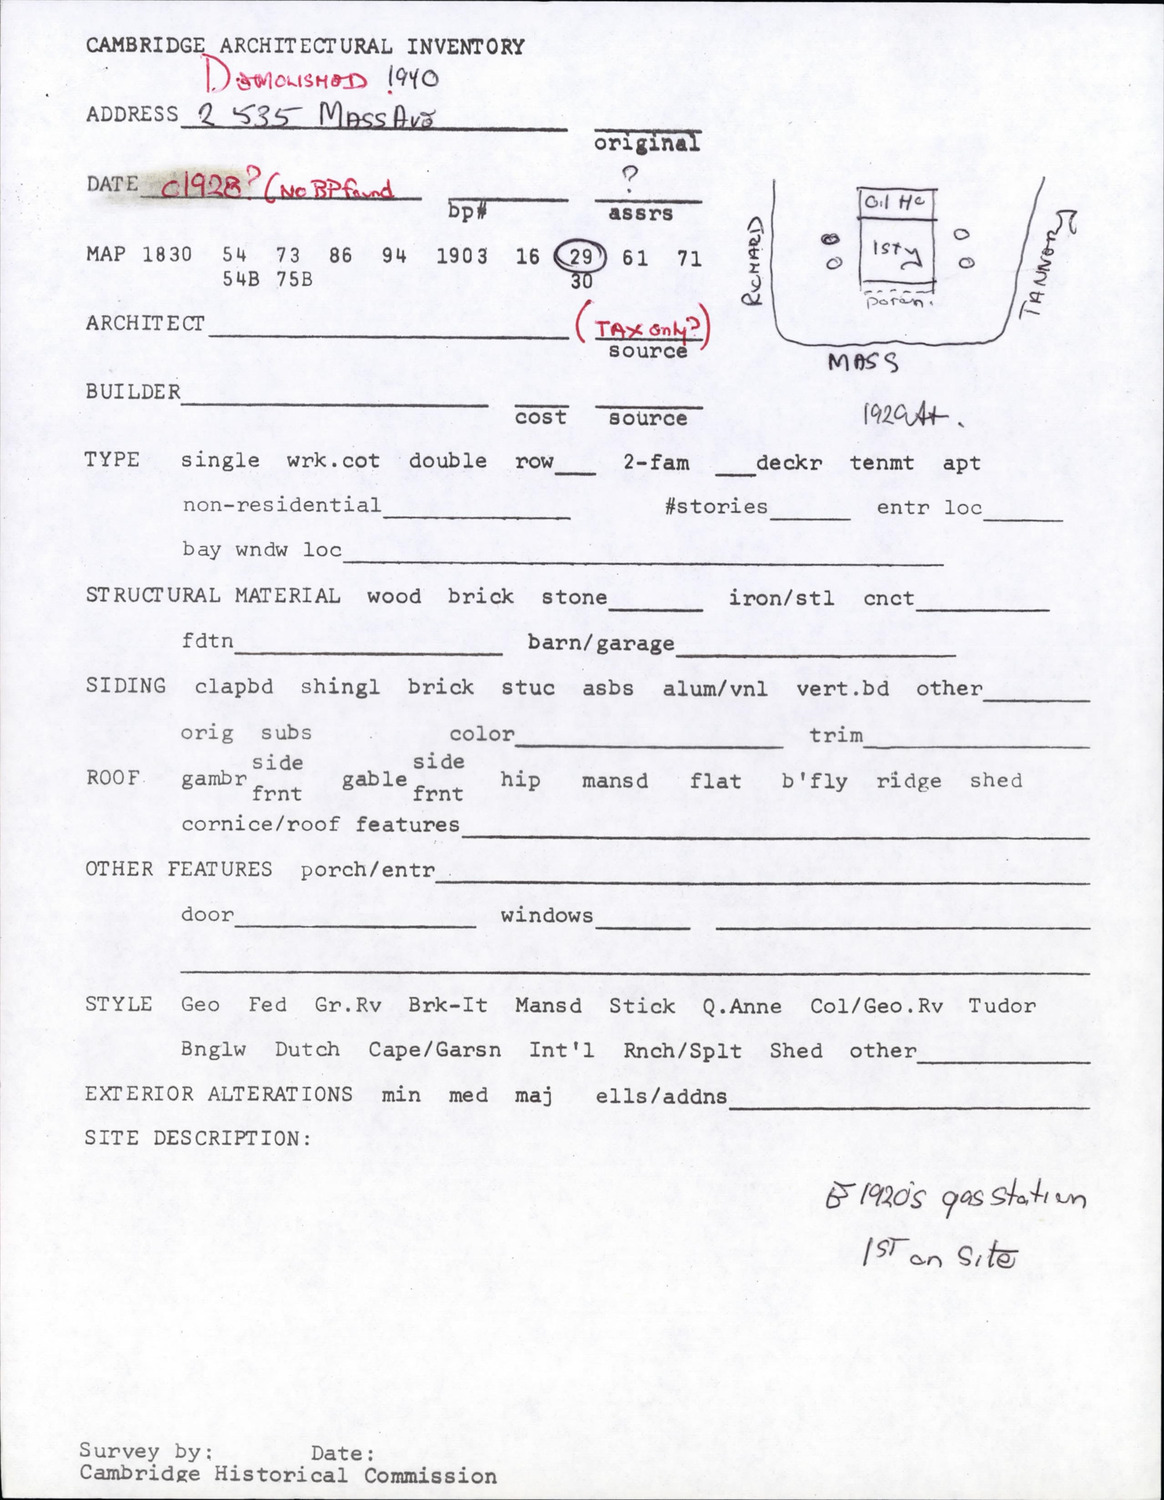 CAMBRIDGE ARCHITECTURAL INVENTORY
DEMOLISHED 1940
ADDRESS 2535 Mass Ave
original
DATE c1928? (No BP found
bp#
?
assrs
MAP 1830 54 73 86 94 1903 16 29 61 71
54B 75B 30
ARCHITECT
(TAX only?)
source
BUILDER
cost source
Oil Hs
1sty
poten.
RICHARD
TANNOR
MASS
1929 At.
TYPE single wrk.cot double row___ 2-fam ___deckr tenmt apt
non-residential #stories entr loc
bay wndw loc
STRUCTURAL MATERIAL wood brick stone iron/stl cnct
fdtn barn/garage
SIDING clapbd shingl brick stuc asbs alum/vnl vert.bd other
orig subs color trim
side side
ROOF gambr gable hip mansd flat b'fly ridge shed
frnt frnt
cornice/roof features
OTHER FEATURES porch/entr
door windows
STYLE Geo Fed Gr.Rv Brk-It Mansd Stick Q.Anne Col/Geo.Rv Tudor
Bnglw Dutch Cape/Garsn Int'l Rnch/Splt Shed other
EXTERIOR ALTERATIONS min med maj ells/addns
SITE DESCRIPTION:
1920's gas station
1ST on site
Survey by: Date:
Cambridge Historical Commission